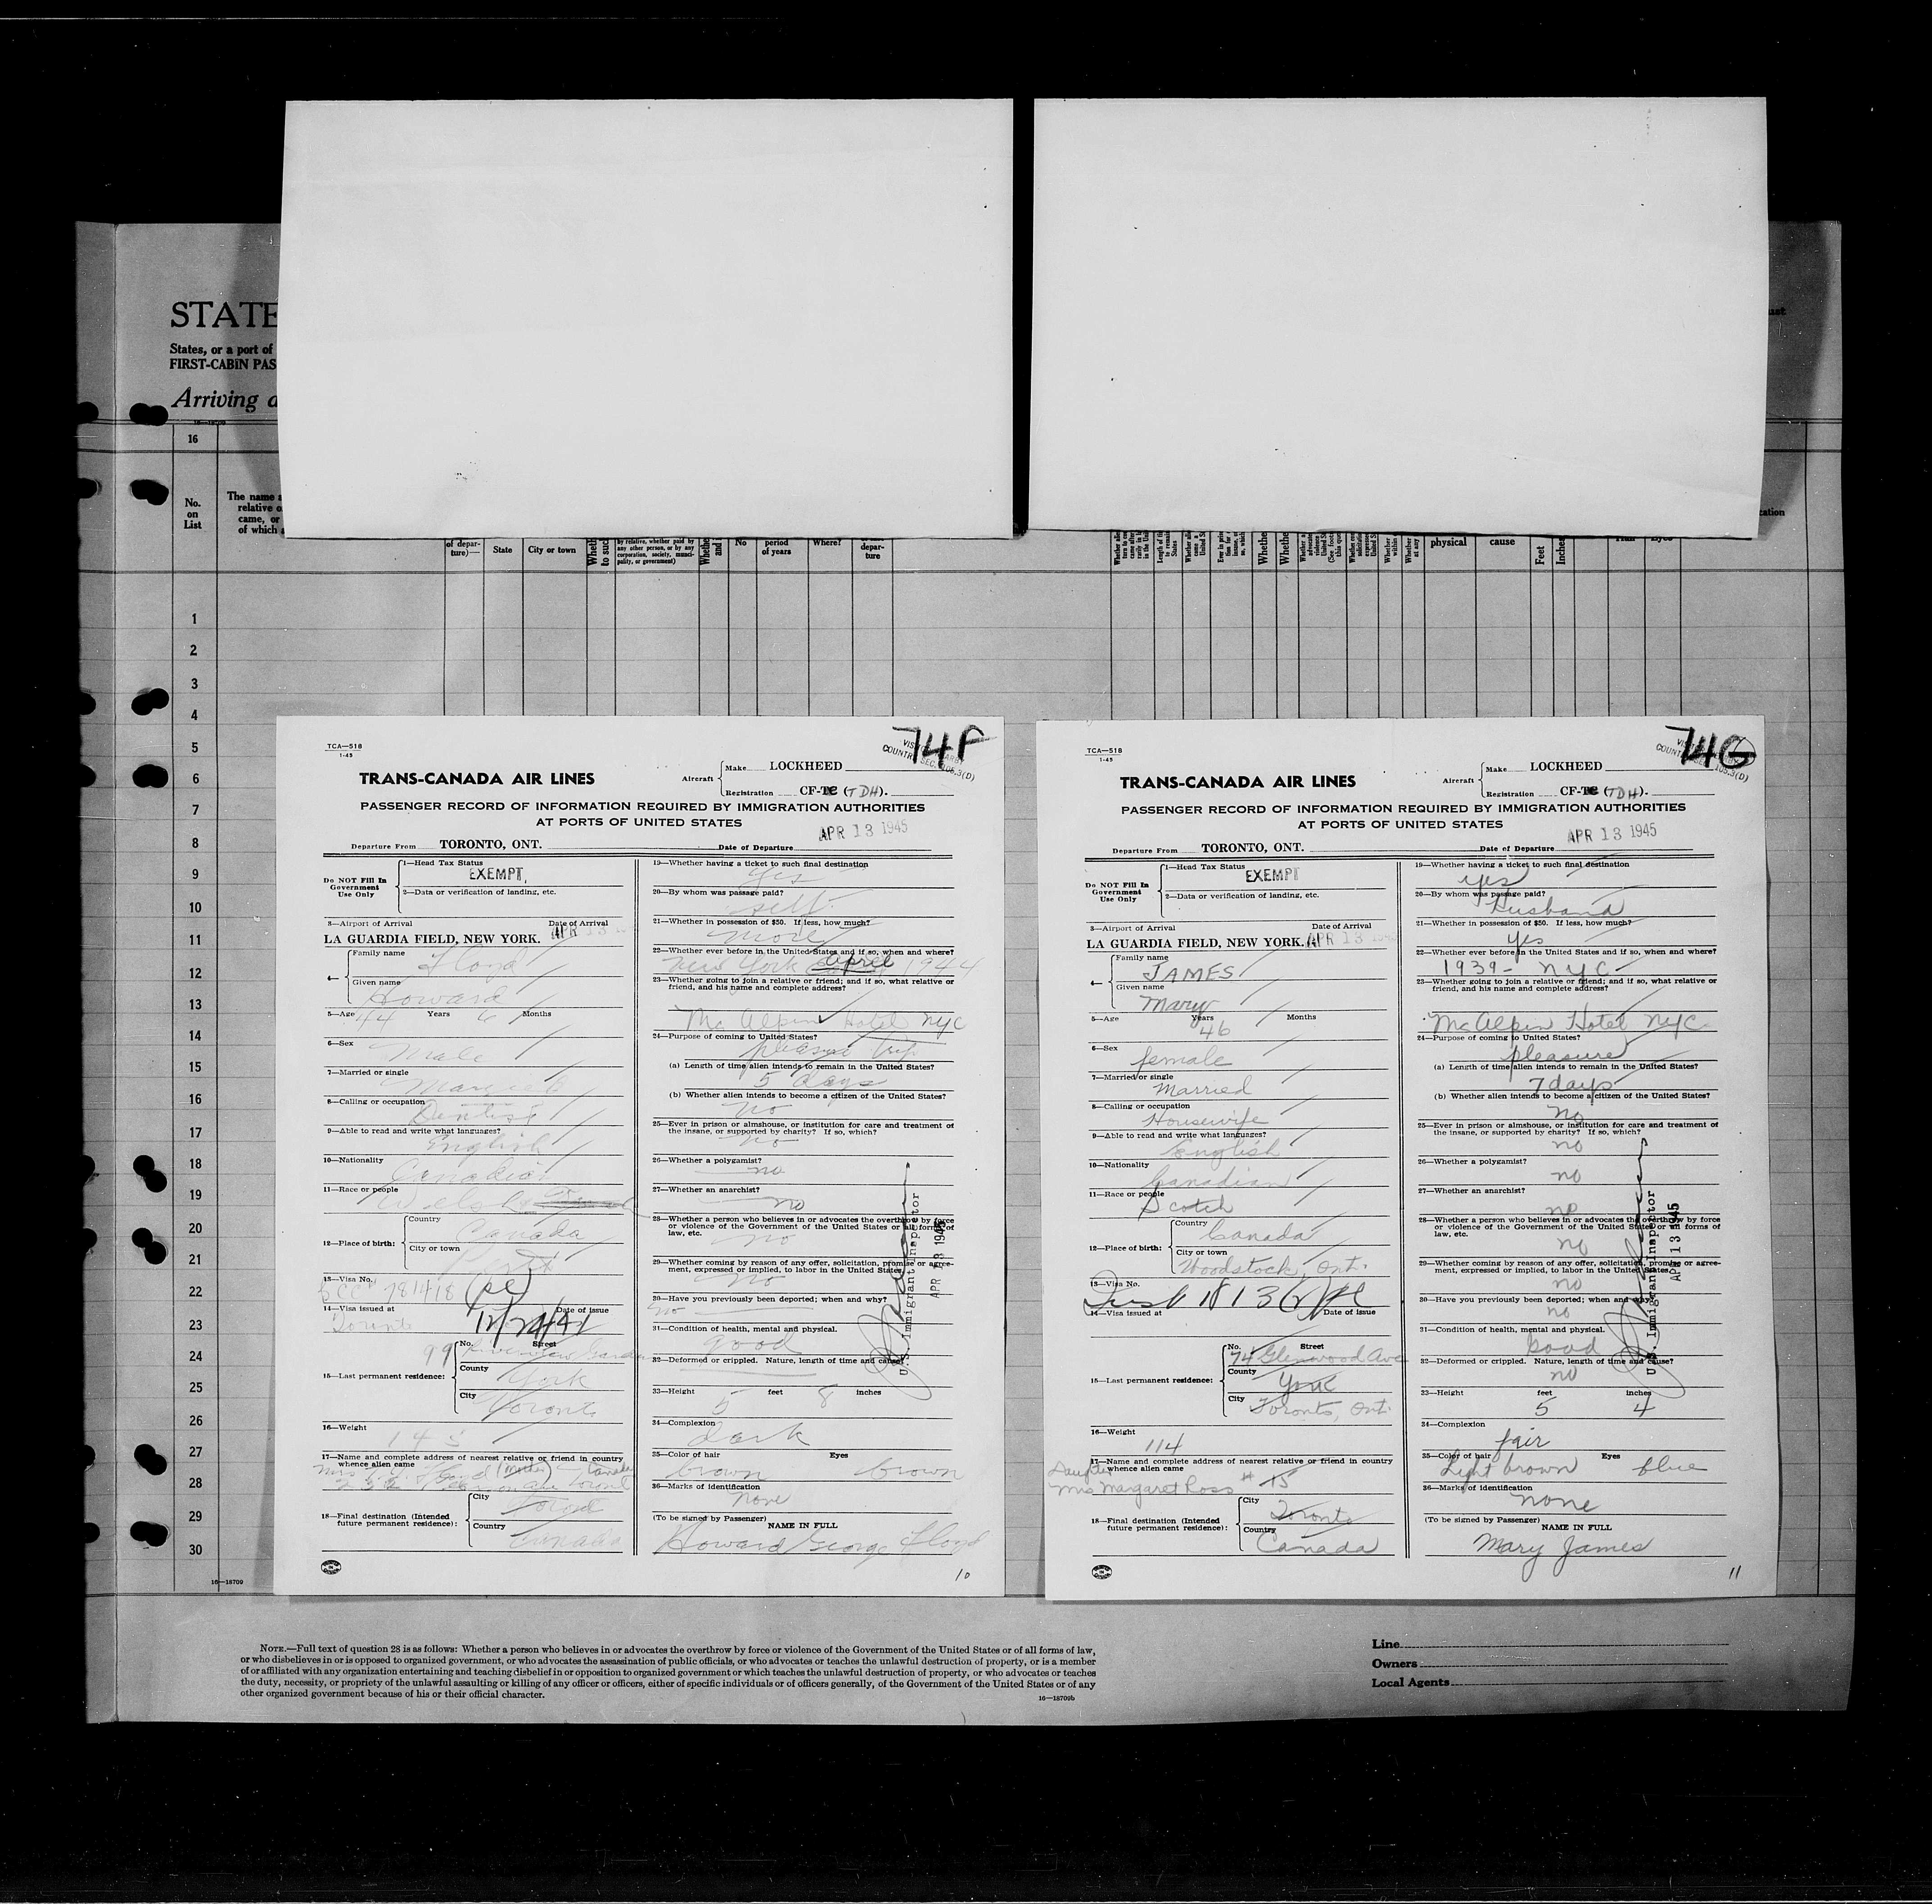 STATE
States, or a port of
FIRST-CABIN PAS
Arriving a
16
No.
on
List
The name a
relative o
came, or
of which a
of depar-
ture)—
State
City or town
Wheth
to such
by relative, whether paid by
any other person, or by any
corporation, society, munici-
pality, or government)
Whethe
and
No
period
of years
Where?
depar-
ture
physical
cause
Feet
Inches
1
2
3
4
5
6
7
8
9
10
11
12
13
14
15
16
17
18
19
20
21
22
23
24
25
26
27
28
29
30
16—18709
TCA—518
1-45
74F
TRANS-CANADA AIR LINES
Aircraft
Make LOCKHEED
Registration CF-TC (TDH).
PASSENGER RECORD OF INFORMATION REQUIRED BY IMMIGRATION AUTHORITIES
AT PORTS OF UNITED STATES
APR 13 1945
Departure From TORONTO, ONT. Date of Departure
Do NOT Fill In
Government
Use Only
1—Head Tax Status
EXEMPT
2—Data or verification of landing, etc.
3—Airport of Arrival Date of Arrival
LA GUARDIA FIELD, NEW YORK. APR 13
4—
Family name
Floyd
Given name
Howard
5—Age 44 Years 6 Months
6—Sex
Male
7—Married or single
Married
8—Calling or occupation
Dentist
9—Able to read and write what languages?
English
10—Nationality
Canadian
11—Race or people
Welsh
12—Place of birth:
Country
Canada
City or town
13—Visa No.
14—Visa issued at Date of Issue
Toronto
15—Last permanent residence:
No. Street
99 Riverview Gardens
County
York
City
Toronto
16—Weight
145
17—Name and complete address of nearest relative or friend in country
whence alien came
18—Final destination (Intended
future permanent residence):
City
Toronto
Country
Canada
19—Whether having a ticket to such final destination
Yes
20—By whom was passage paid?
self
21—Whether in possession of $50. If less, how much?
more
22—Whether ever before in the United States and if so, when and where?
New York April 1944
23—Whether going to join a relative or friend; and if so, what relative or
friend, and his name and complete address?
Mc Alpin Hotel NYC
24—Purpose of coming to United States?
pleasure trip
(a) Length of time alien intends to remain in the United States?
5 days
(b) Whether alien intends to become a citizen of the United States?
no
25—Ever in prison or almshouse, or institution for care and treatment of
the insane, or supported by charity? If so, which?
no
26—Whether a polygamist?
no
27—Whether an anarchist?
no
28—Whether a person who believes in or advocates the overthrow by force
or violence of the Government of the United States or all forms of
law, etc.
no
29—Whether coming by reason of any offer, solicitation, promise or agree-
ment, expressed or implied, to labor in the United States.
no
30—Have you previously been deported; when and why?
no
31—Condition of health, mental and physical.
good
32—Deformed or crippled. Nature, length of time and cause?
33—Height 5 feet 8 inches
34—Complexion
dark
35—Color of hair Eyes
brown brown
36—Marks of identification
none
(To be signed by Passenger)
NAME IN FULL
Howard George Floyd
U.S. Immigrant Inspector
APR 13 1945
10
TCA—518
1-45
74G
TRANS-CANADA AIR LINES
Aircraft
Make LOCKHEED
Registration CF-TC (TDH).
PASSENGER RECORD OF INFORMATION REQUIRED BY IMMIGRATION AUTHORITIES
AT PORTS OF UNITED STATES
APR 13 1945
Departure From TORONTO, ONT. Date of Departure
Do NOT Fill In
Government
Use Only
1—Head Tax Status
EXEMPT
2—Data or verification of landing, etc.
3—Airport of Arrival Date of Arrival
LA GUARDIA FIELD, NEW YORK. APR 13
4—
Family name
JAMES
Given name
Mary
5—Age Years Months
46
6—Sex
female
7—Married or single
Married
8—Calling or occupation
Housewife
9—Able to read and write what languages?
English
10—Nationality
Canadian
11—Race or people
Scotch
12—Place of birth:
Country
Canada
City or town
Woodstock, Ont.
13—Visa No.
14—Visa issued at Date of issue
15—Last permanent residence:
No. Street
74 Glenwood Ave
County
York
City
Toronto, Ont.
16—Weight
114
17—Name and complete address of nearest relative or friend in country
whence alien came
Daughter
Mrs Margaret Ross # 15
18—Final destination (Intended
future permanent residence):
City
Toronto
Country
Canada
19—Whether having a ticket to such final destination
yes
20—By whom was passage paid?
Husband
21—Whether in possession of $50. If less, how much?
yes
22—Whether ever before in the United States and if so, when and where?
1939 - NYC
23—Whether going to join a relative or friend; and if so, what relative or
friend, and his name and complete address?
McAlpin Hotel NYC.
24—Purpose of coming to United States?
pleasure
(a) Length of time alien intends to remain in the United States?
7 days
(b) Whether alien intends to become a citizen of the United States?
no
25—Ever in prison or almshouse, or institution for care and treatment of
the insane, or supported by charity? If so, which?
no
26—Whether a polygamist?
no
27—Whether an anarchist?
no
28—Whether a person who believes in or advocates the overthrow by force
or violence of the Government of the United States or all forms of
law, etc.
no
29—Whether coming by reason of any offer, solicitation, promise or agree-
ment, expressed or implied, to labor in the United States.
no
30—Have you previously been deported; when and why?
no
31—Condition of health, mental and physical.
good
32—Deformed or crippled. Nature, length of time and cause?
no
33—Height feet inches
5 4
34—Complexion
fair
35—Color of hair Eyes
Light brown blue
36—Marks of identification
none
(To be signed by Passenger)
NAME IN FULL
Mary James
U.S. Immigrant Inspector
APR 13 1945
11
NOTE.—Full text of question 28 is as follows: Whether a person who believes in or advocates the overthrow by force or violence of the Government of the United States or of all forms of law,
or who disbelieves in or is opposed to organized government, or who advocates the assassination of public officials, or who advocates or teaches the unlawful destruction of property, or is a member
of or affiliated with any organization entertaining and teaching disbelief in or opposition to organized government or which teaches the unlawful destruction of property, or who advocates or teaches
the duty, necessity, or propriety of the unlawful assaulting or killing of any officer or officers, either of specific individuals or of officers generally, of the Government of the United States or of any
other organized government because of his or their official character.
16—18709b
Line
Owners
Local Agents